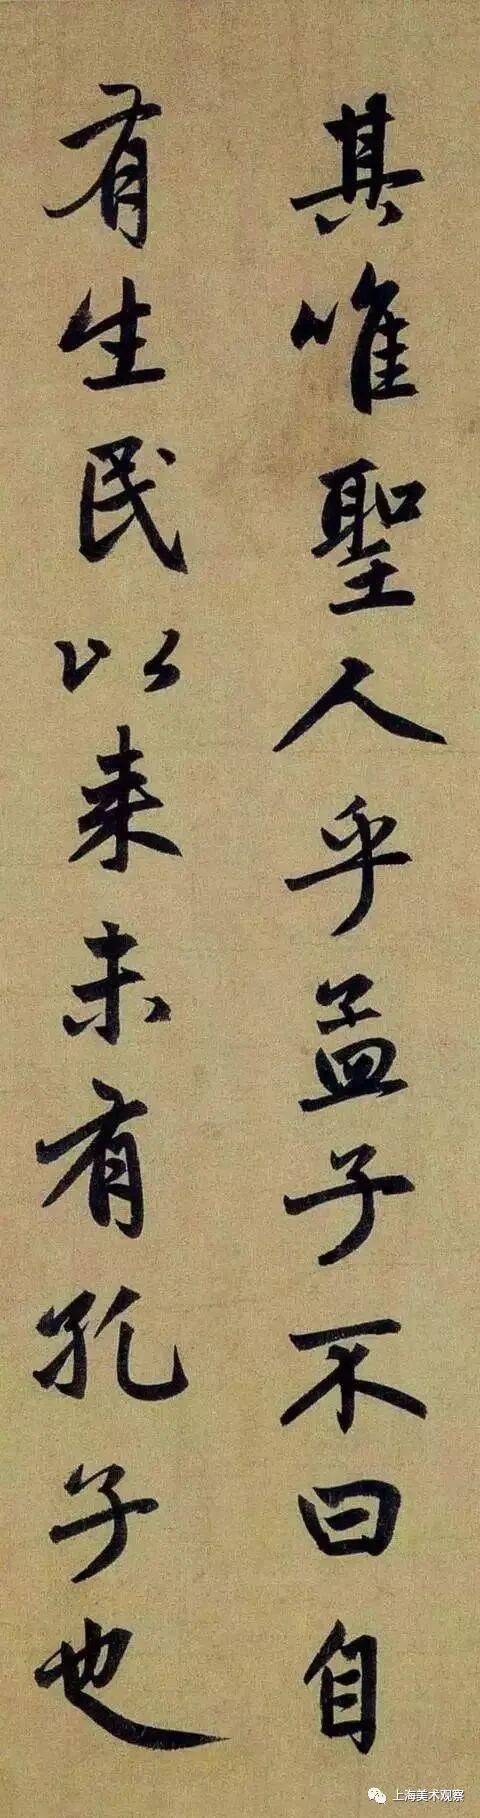 其唯聖人乎孟子不曰自
有生民以来未有孔子也
上海美术观察